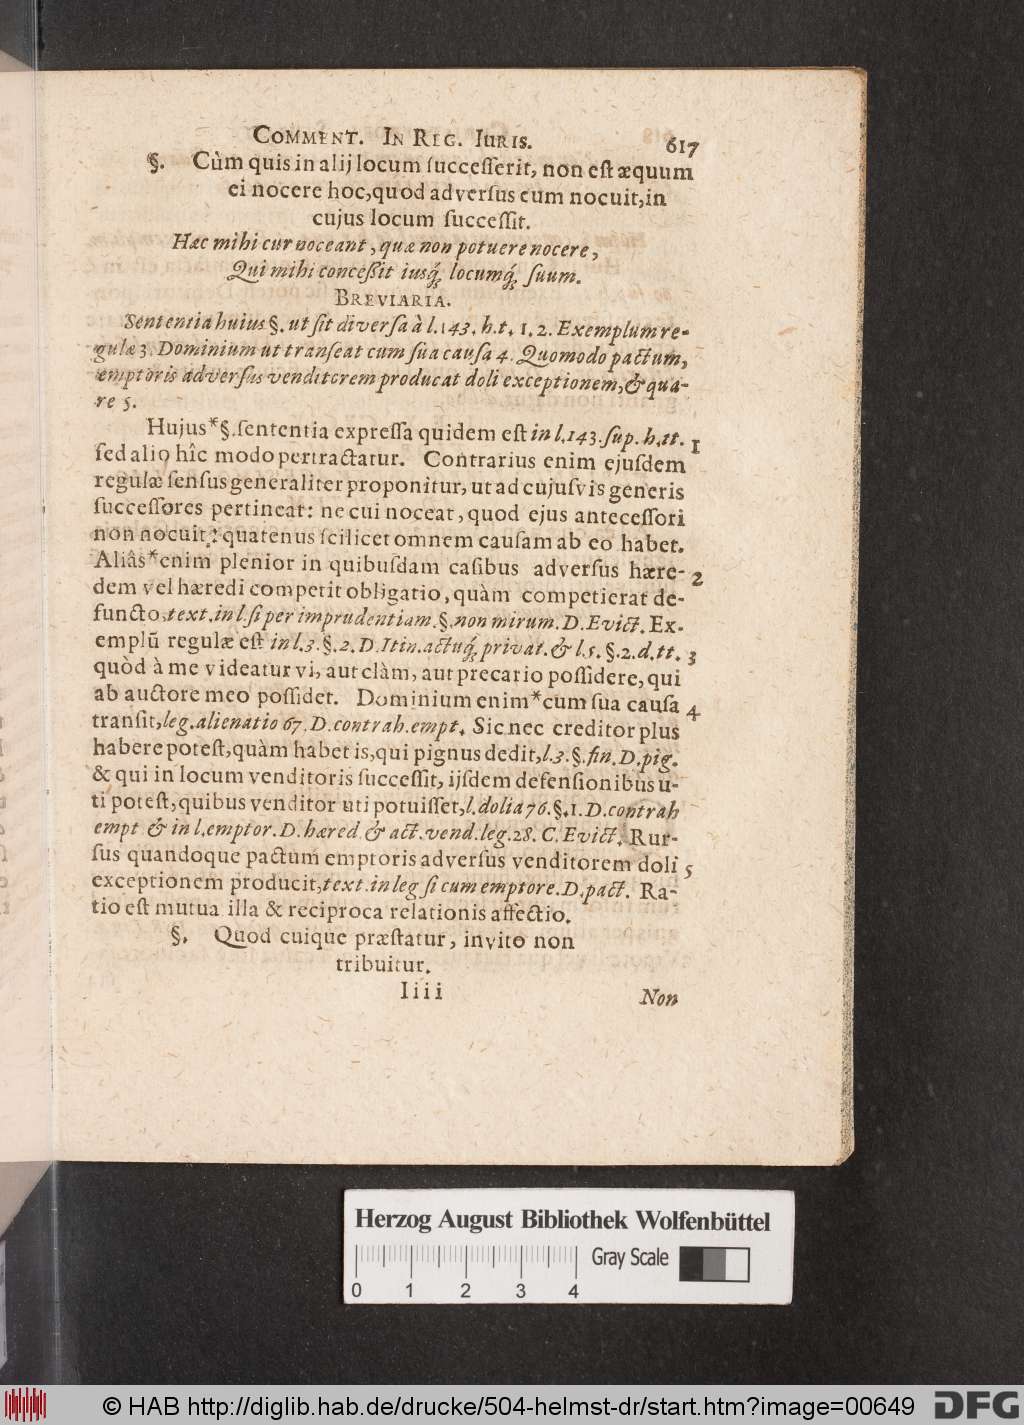 COMMENT. IN REG. IURIS. 617
§. Cùm quis in alij locum ſucceſſerit, non eſt æquum
ei nocere hoc, quod adverſus eum nocuit, in
cujus locum ſucceſſit.
Hæc mihi cur noceant, quæ non potuere nocere,
Qui mihi conceßit iusq́; locumq́; ſuum.
BREVIARIA.
Sententia huius §. ut ſit diverſa à l. 143. h. t. 1. 2. Exemplum re-
gulæ 3. Dominium ut tranſeat cum ſua cauſa 4. Quomodo pactum,
emptoris adverſus venditorem producat doli exceptionem, & qua-
re 5.
Hujus* §. ſententia expreſſa quidem eſt in l. 143. ſup. h. tt. 1
ſed alio hîc modo pertractatur. Contrarius enim ejuſdem
regulæ ſenſus generaliter proponitur, ut ad cujuſvis generis
ſucceſſores pertineat: ne cui noceat, quod ejus anteceſſori
non nocuit: quatenus ſcilicet omnem cauſam ab eo habet.
Aliâs* enim plenior in quibuſdam caſibus adverſus hære- 2
dem vel hæredi competit obligatio, quàm competierat de-
functo, text. in l. ſi per imprudentiam. §. non mirum. D. Evict. Ex-
emplũ regulæ eſt in l. 3. §. 2. D. Itin. actuq́; privat. & l. 5. §. 2. d. tt. 3
quòd à me videatur vi, aut clàm, aut precario poſſidere, qui
ab auctore meo poſſidet. Dominium enim* cum ſua cauſa 4
tranſit, leg. alienatio 67. D. contrah. empt. Sic nec creditor plus
habere poteſt, quàm habet is, qui pignus dedit, l. 3. §. fin. D. pig.
& qui in locum venditoris ſucceſſit, ijſdem defenſionibus u-
ti poteſt, quibus venditor uti potuiſſet, l. dolia 76. §. 1. D. contrah
empt & in l. emptor. D. hæred. & act. vend. leg. 28. C. Evict. Rur-
ſus quandoque pactum emptoris adverſus venditorem doli 5
exceptionem producit, text. in leg ſi cum emptore. D. pact. Ra-
tio eſt mutua illa & reciproca relationis affectio.
§. Quod cuique præſtatur, invito non
tribuitur.
Iiii Non
Herzog August Bibliothek Wolfenbüttel
Gray Scale
0 1 2 3 4
© HAB http://diglib.hab.de/drucke/504-helmst-dr/start.htm?image=00649 DFG